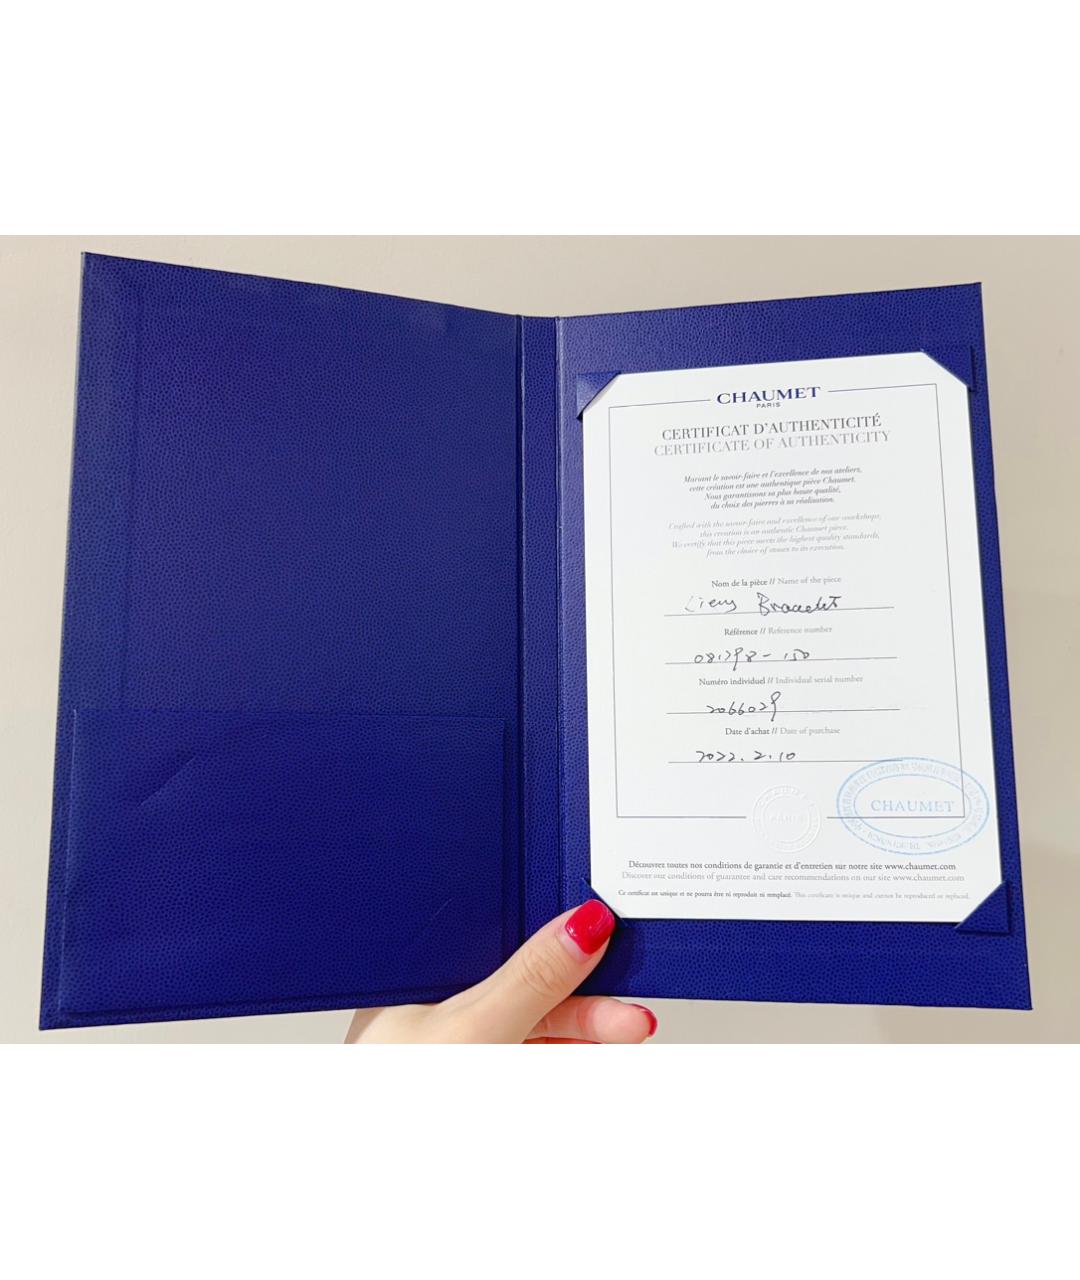 CHAUMET
PARIS
CERTIFICAT D'AUTHENTICITÉ
CERTIFICATE OF AUTHENTICITY
Mariant le savoir-faire et l'excellence de nos ateliers,
cette création est une authentique pièce Chaumet.
Nous garantissons sa plus haute qualité,
du choix des pierres à sa réalisation.
Crafted with the savoir-faire and excellence of our workshops,
this creation is an authentic Chaumet piece.
We certify that this piece meets the highest quality standards,
from the choice of stones to its execution.
Nom de la pièce // Name of the piece
Liens Bracelet
Référence // Reference number
Numéro individuel // Individual serial number
2066029
Date d'achat // Date of purchase
2022.2.10
PARIS
CHAUMET
Découvrez toutes nos conditions de garantie et d'entretien sur notre site www.chaumet.com
Discover our conditions of guarantee and care recommendations on our site www.chaumet.com
Ce certificat est unique et ne pourra être ni reproduit ni remplacé. This certificate is unique and cannot be reproduced or replaced.